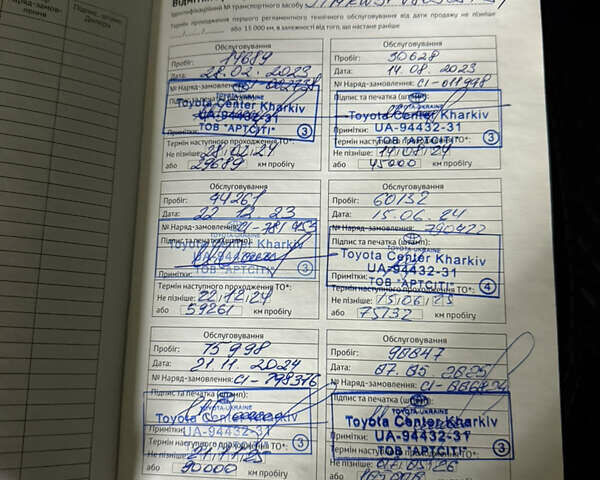 Ідентифікаційний № транспортного засобу
Термін проходження першого регламентного технічного обслуговування від дати продажу не пізніше
або 15 000 км, в залежності від того, що настане раніше
Обслуговування
Пробіг: 14689
Дата: 28.02.2023
№ Наряд-замовлення:
TOYOTA-UKRAINE
Toyota Center Kharkiv
UA-94432-31
Примітки: ТОВ "АРТСІТІ" 3
Термін наступного проходження ТО*:
Не пізніше: 28/02/24
або 29689 км пробігу
Обслуговування
Пробіг: 30628
Дата: 14.08.2023
№ Наряд-замовлення: СІ-011998
Підпис та печатка (штамп):
TOYOTA-UKRAINE
Toyota Center Kharkiv
UA-94432-31
Примітки: ТОВ "АРТСІТІ" 3
Термін наступного проходження ТО*:
Не пізніше: 14/08/24
або 45000 км пробігу
Обслуговування
Пробіг: 44261
Дата: 22.12.23
№ Наряд-замовлення:
Підпис та печатка (штамп):
TOYOTA-UKRAINE
Toyota Center Kharkiv
UA-94432-31
Примітки: ТОВ "АРТСІТІ" 3
Термін наступного проходження ТО*:
Не пізніше: 22/12/24
або 59261 км пробігу
Обслуговування
Пробіг: 60132
Дата: 15.06.24
№ Наряд-замовлення: 790422
Підпис та печатка (штамп):
Toyota Center Kharkiv
UA-94432-31
Примітки: ТОВ "АРТСІТІ" 4
Термін наступного проходження ТО*:
Не пізніше: 15/06/25
або 75132 км пробігу
Обслуговування
Пробіг: 75998
Дата: 21.11.2024
№ Наряд-замовлення: СІ-798376
Підпис та печатка (штамп):
TOYOTA-UKRAINE
Toyota Center Kharkiv
UA-94432-31
Примітки: ТОВ "АРТСІТІ" 3
Термін наступного проходження ТО*:
Не пізніше: 21/11/25
або 90000 км пробігу
Обслуговування
Пробіг: 90847
Дата: 07.05.2025
№ Наряд-замовлення:
Підпис та печатка (штамп):
TOYOTA-UKRAINE
Toyota Center Kharkiv
UA-94432-31
Примітки: ТОВ "АРТСІТІ" 3
Термін наступного проходження ТО*:
Не пізніше:
або км пробігу